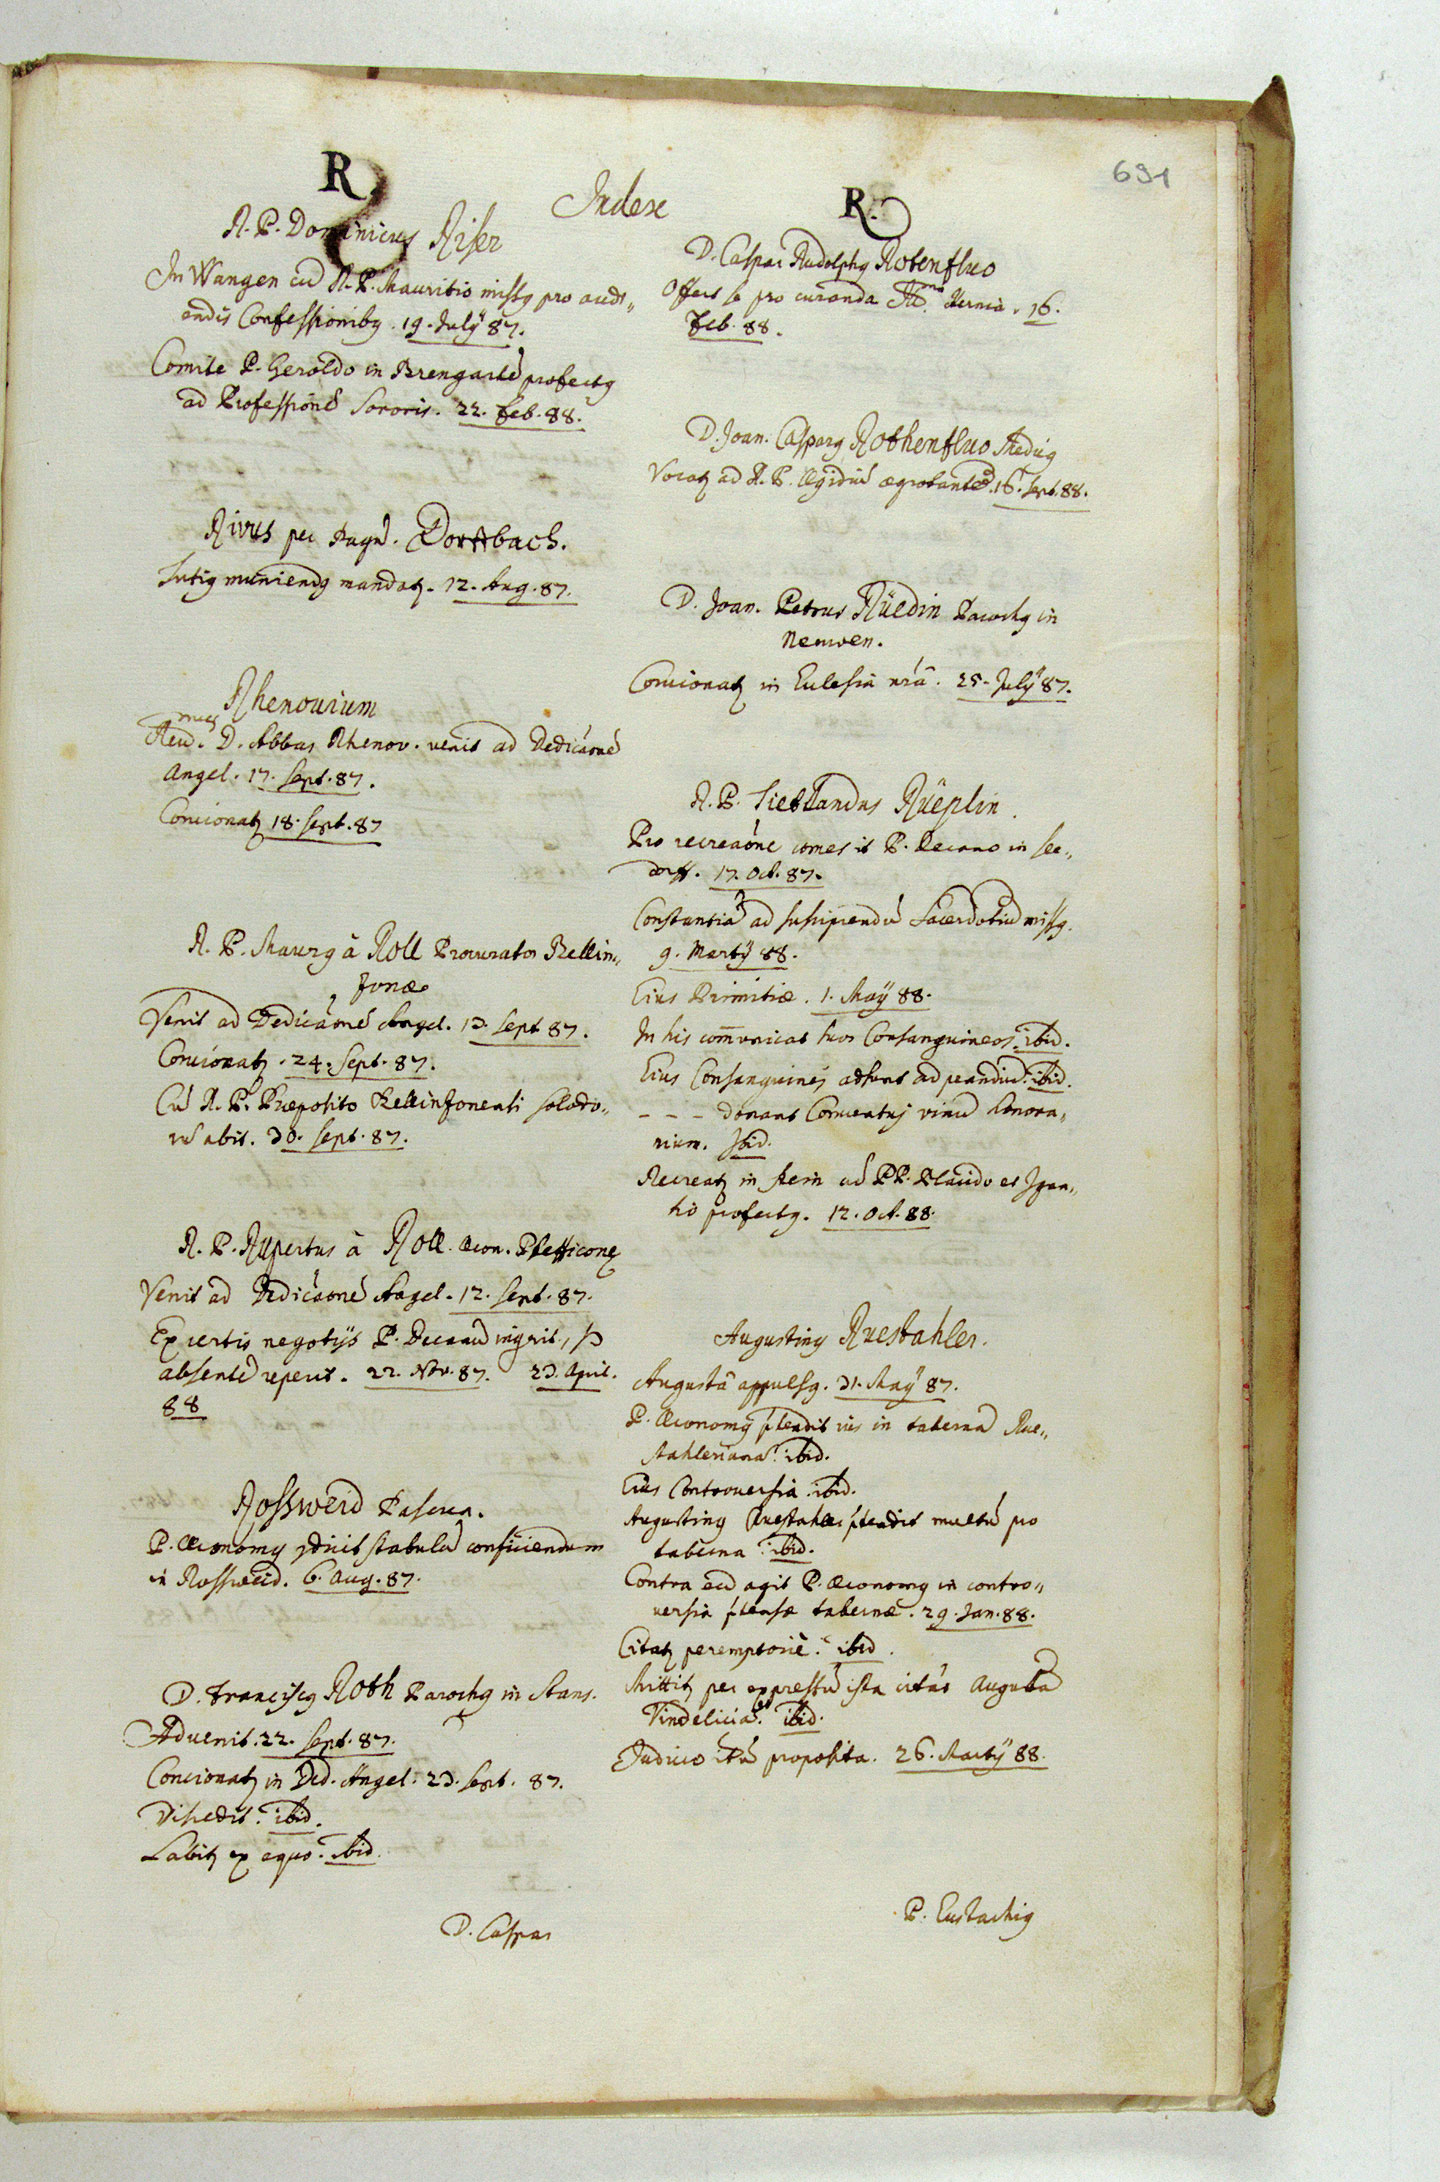 691
Index
R.
R. P. Dominicus Riser
In Wangen cū R. P. Mauritio missꝰ pro audi„
endis Confessionibꝰ. 19. Julÿ 87.
Comite P. Geroldo in Brengartē profectꝰ
ad Professionē Sororis. 22. Feb. 88.
Rivus per Pagū. Dorffbach.
Tutiꝰ muniendꝰ mandatꝛ. 12. Aug. 87.
Rhenovium
Reuᵐᵘˢ. D. Abbas Rhenov. venit ad Dedicāonē
Angel. 17. Sept. 87.
Concionatꝛ 18. Sept. 87
R. P. Maurꝰ à Roll Procurator Bellin„
zonæ
Venit ad Dedicāonē Angel. 13. Sept 87.
Concionatꝛ. 24. Sept. 87.
Cū R. P. Præposito Bellinzonensi solodo„
rū abit. 30. Sept. 87.
R. P. Rupertus à Roll. Œcon. Pfefficonꝰ
Venit ad Dedicāonē Angel. 12. Sept. 87.
Ex certis negotijs P. Decanū inqrit,
absentē reperit. 22. Nov. 87. 23. April.
88
Rossweid Pascua.
P. Œconomꝰ ꝯducit stabulū conficiendum
in Rossweid. 6. Aug. 87.
D. Franciscꝰ Roth Parochꝰ in Stans.
Aduenit. 22. Sept. 87.
Concionatꝛ in Ded. Angel. 23. Sept. 87.
Discedit. ibid.
Labitꝛ ex equo. ibid.
D. Caspar
R.
D. Caspar Rudolphꝰ Rotenfluo
Offert se pro curanda Hernia. 16.
Feb. 88.
D. Joan. Casparꝰ Rothenfluo Medicꝰ
Vocatꝛ ad R. P. Ægidiū ægrotantē. 16. Sept. 88.
D. Joan. Petrus Rüedin Parochꝰ in
Newen.
Concionatꝛ in Ecclesiā nrā. 25. Julÿ 87.
R. P. Sieblandus Rüeplin.
Pro recreāone comes it P. Decano in See„
dorff. 17. Oct. 87.
Constantiā ad suscipiendū Sacerdotiū missꝰ.
9. Martÿ 88.
Eius Primitiæ. 1. Maÿ 88.
In his com̄unicat suos Consanguineos. ibid.
Eius Consanguinej adsunt ad prandiū. ibid.
- - - donant Conventuj vinū honora„
rium. Ibid.
Recreatꝛ in Stein cū PP. Placido et Igna„
tio profectꝰ. 12. Oct. 88.
Augustinꝰ Ruestahler.
Augustā appulsꝰ. 31. Maÿ 87.
P. Œconomꝰ ptendit ius in tabernā Rue„
stahlerianā. ibid.
Eius Controuersia. ibid.
Augustinꝰ Ruestahler ptendit multū pro
taberna. ibid.
Contra eū agit P. Œconomꝰ in contro„
versia ptensæ tabernæ. 29. Jan. 88.
Citatꝛ peremptoriè. ibid.
Mittitꝛ per expressū ista citāo Augustā
Vindeliciā. ibid.
Judicio itū proposita. 26. Martÿ 88.
P. Eustachiꝰ